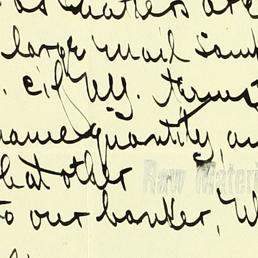 as matters are
large mail
c.i.f. N.Y.
same quantity, an
what other
Raw Materi
to our banker, W